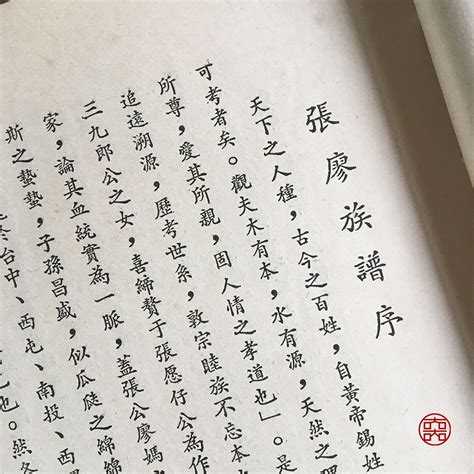 張廖族譜序
天下之人種，古今之百姓，自黃帝錫姓
可考者矣。觀夫木有本，水有源，天然之
所尊，愛其所親，固人情之孝道也」。是
追遠溯源，歷考世系，敦宗睦族不忘本
三九郎公之女，喜締贅于張愿仔公為作
家，論其血統實為一脈，蓋張公廖媽
斯之蟄蟄，子孫昌盛，似瓜瓞之綿綿
於台中、西屯、南投、西
也。然各